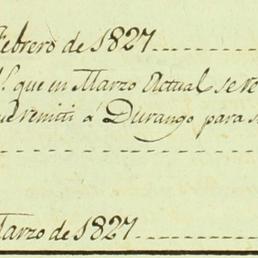 Febrero de 1827
que en Marzo Actual se re
remiti á Durango para s
Marzo de 1827